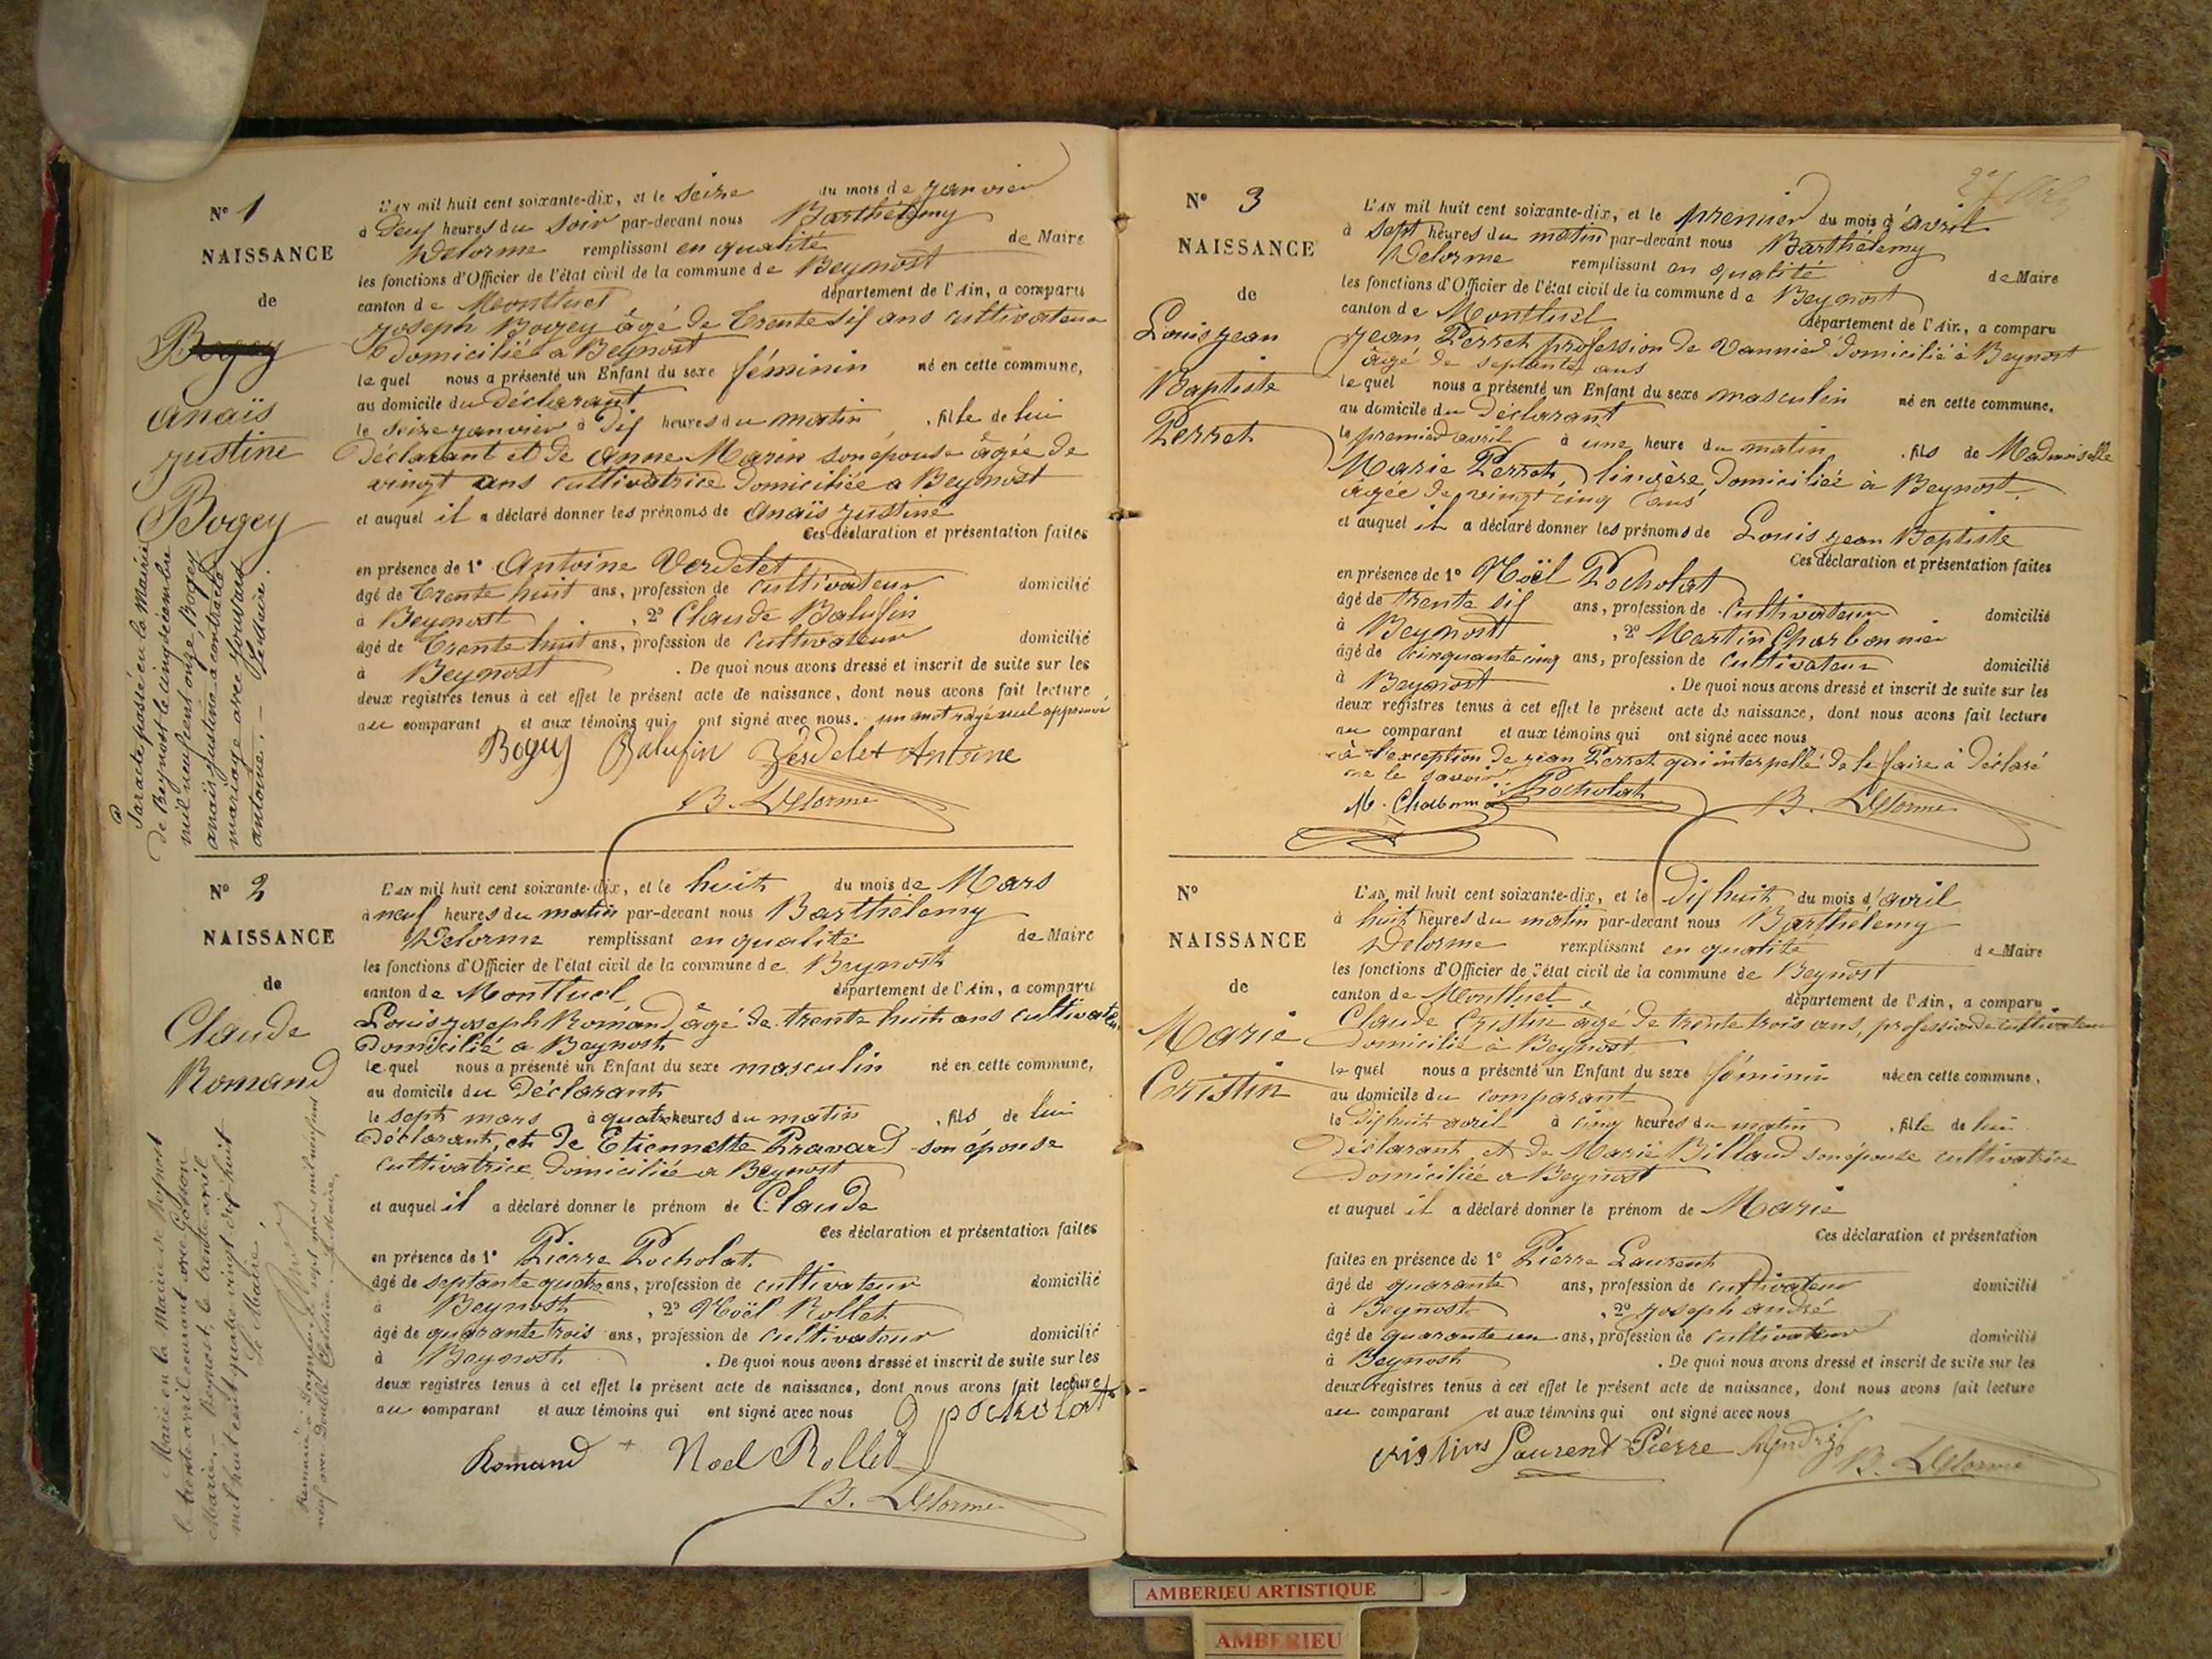 N° 1
NAISSANCE
de
Bogey
Anaïs
Justine
Bogey
L'AN mil huit cent soixante-dix, et le seize du mois de Janvier
à deux heures du soir par-devant nous Barthélemy
Delorme remplissant en qualité de Maire
les fonctions d'Officier de l'état civil de la commune de Beynost
canton de Montluel département de l'Ain, a comparu
Joseph Bogey âgé de trente six ans cultivateur
domicilié à Beynost
lequel nous a présenté un Enfant du sexe féminin né en cette commune,
au domicile du déclarant
le seize janvier à dix heures du matin, fille de lui
déclarant et de Anne Marin son épouse âgée de
vingt ans cultivatrice domiciliée à Beynost
et auquel il a déclaré donner les prénoms de Anaïs Justine
Ces déclaration et présentation faites
en présence de 1° Antoine Verdelet
âgé de trente huit ans, profession de cultivateur domicilié
à Beynost, 2° Claude Balufin
âgé de trente huit ans, profession de cultivateur domicilié
à Beynost. De quoi nous avons dressé et inscrit de suite sur les
deux registres tenus à cet effet le présent acte de naissance, dont nous avons fait lecture
au comparant et aux témoins qui ont signé avec nous. un mot rayé nul approuvé
Bogey Balufin Verdelet Antoine
B. Delorme
Par acte passé en la Mairie
de Beynost le cinq décembre
mil neuf cent onze Bogey
anaïs justine a contracté
mariage avec
antoine. —
N° 2
NAISSANCE
de
Claude
Romand
L'AN mil huit cent soixante-dix, et le huit du mois de Mars
à neuf heures du matin par-devant nous Barthélemy
Delorme remplissant en qualité de Maire
les fonctions d'Officier de l'état civil de la commune de Beynost
canton de Montluel département de l'Ain, a comparu
Louis Joseph Romand âgé de trente huit ans cultivateur
domicilié à Beynost
lequel nous a présenté un Enfant du sexe masculin né en cette commune,
au domicile du déclarant
le sept mars à quatre heures du matin, fils de lui
déclarant, et de Etiennette Pravard son épouse
cultivatrice domiciliée à Beynost
et auquel il a déclaré donner le prénom de Claude
Ces déclaration et présentation faites
en présence de 1° Pierre Pocholat
âgé de septante quatre ans, profession de cultivateur domicilié
à Beynost, 2° Noël Rollet
âgé de quarante trois ans, profession de cultivateur domicilié
à Beynost. De quoi nous avons dressé et inscrit de suite sur les
deux registres tenus à cet effet le présent acte de naissance, dont nous avons fait lecture
au comparant et aux témoins qui ont signé avec nous pocholat
Romand Noel Rollet
B. Delorme
Marié en la Mairie de Beynost
le trente avril courant avec
Marie. — Beynost, le trente avril
mil huit cent quatre vingt dix huit
Le Maire,
Remarié à Dagneux le sept mars mil neuf cent
neuf avec
Le Maire,
N° 3
NAISSANCE
de
Louis Jean
Baptiste
Perret
L'AN mil huit cent soixante-dix, et le premier du mois d'avril
à sept heures du matin par-devant nous Barthélemy
Delorme remplissant en qualité de Maire
les fonctions d'Officier de l'état civil de la commune de Beynost
canton de Montluel département de l'Ain, a comparu
Jean Perret profession de Vannier domicilié à Beynost
âgé de septante ans
lequel nous a présenté un Enfant du sexe masculin né en cette commune,
au domicile du déclarant
le premier avril à une heure du matin, fils de Mademoiselle
Marie Perret, lingère domiciliée à Beynost
âgée de vingt cinq ans
et auquel il a déclaré donner les prénoms de Louis Jean Baptiste
Ces déclaration et présentation faites
en présence de 1° Noël Pocholat
âgé de trente six ans, profession de cultivateur domicilié
à Beynost, 2° Martin Charbonnier
âgé de cinquante cinq ans, profession de cultivateur domicilié
à Beynost. De quoi nous avons dressé et inscrit de suite sur les
deux registres tenus à cet effet le présent acte de naissance, dont nous avons fait lecture
au comparant et aux témoins qui ont signé avec nous
à l'exception de Jean Perret qui interpellé de le faire a déclaré
ne le savoir
Pocholat B. Delorme
N°
NAISSANCE
de
Marie
Cristin
L'AN mil huit cent soixante-dix, et le dix huit du mois d'avril
à huit heures du matin par-devant nous Barthélemy
Delorme remplissant en qualité de Maire
les fonctions d'Officier de l'état civil de la commune de Beynost
canton de Montluel, département de l'Ain, a comparu
Claude Cristin âgé de trente trois ans, profession de cultivateur
domicilié à Beynost
lequel nous a présenté un Enfant du sexe féminin née en cette commune,
au domicile du comparant
le dix huit avril à cinq heures du matin, fille de lui
déclarant et de Marie Billaud son épouse cultivatrice
domiciliée à Beynost
et auquel il a déclaré donner le prénom de Marie
Ces déclaration et présentation
faites en présence de 1° Pierre Laurent
âgé de quarante ans, profession de cultivateur domicilié
à Beynost, 2° Joseph André
âgé de quarante un ans, profession de cultivateur domicilié
à Beynost. De quoi nous avons dressé et inscrit de suite sur les
deux registres tenus à cet effet le présent acte de naissance, dont nous avons fait lecture
au comparant et aux témoins qui ont signé avec nous
Laurent Pierre André B. Delorme
AMBERIEU ARTISTIQUE
AMBERIEU